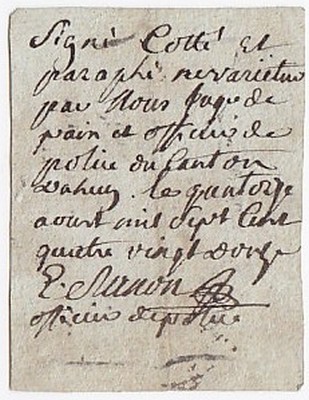 Signé Cotté et
paraphé nevarietur
par Nous Juge de
paix et officier de
police du Canton
d'ahun le quatorze
aoust mil sept Cent
quatre vingt douze
officier de police